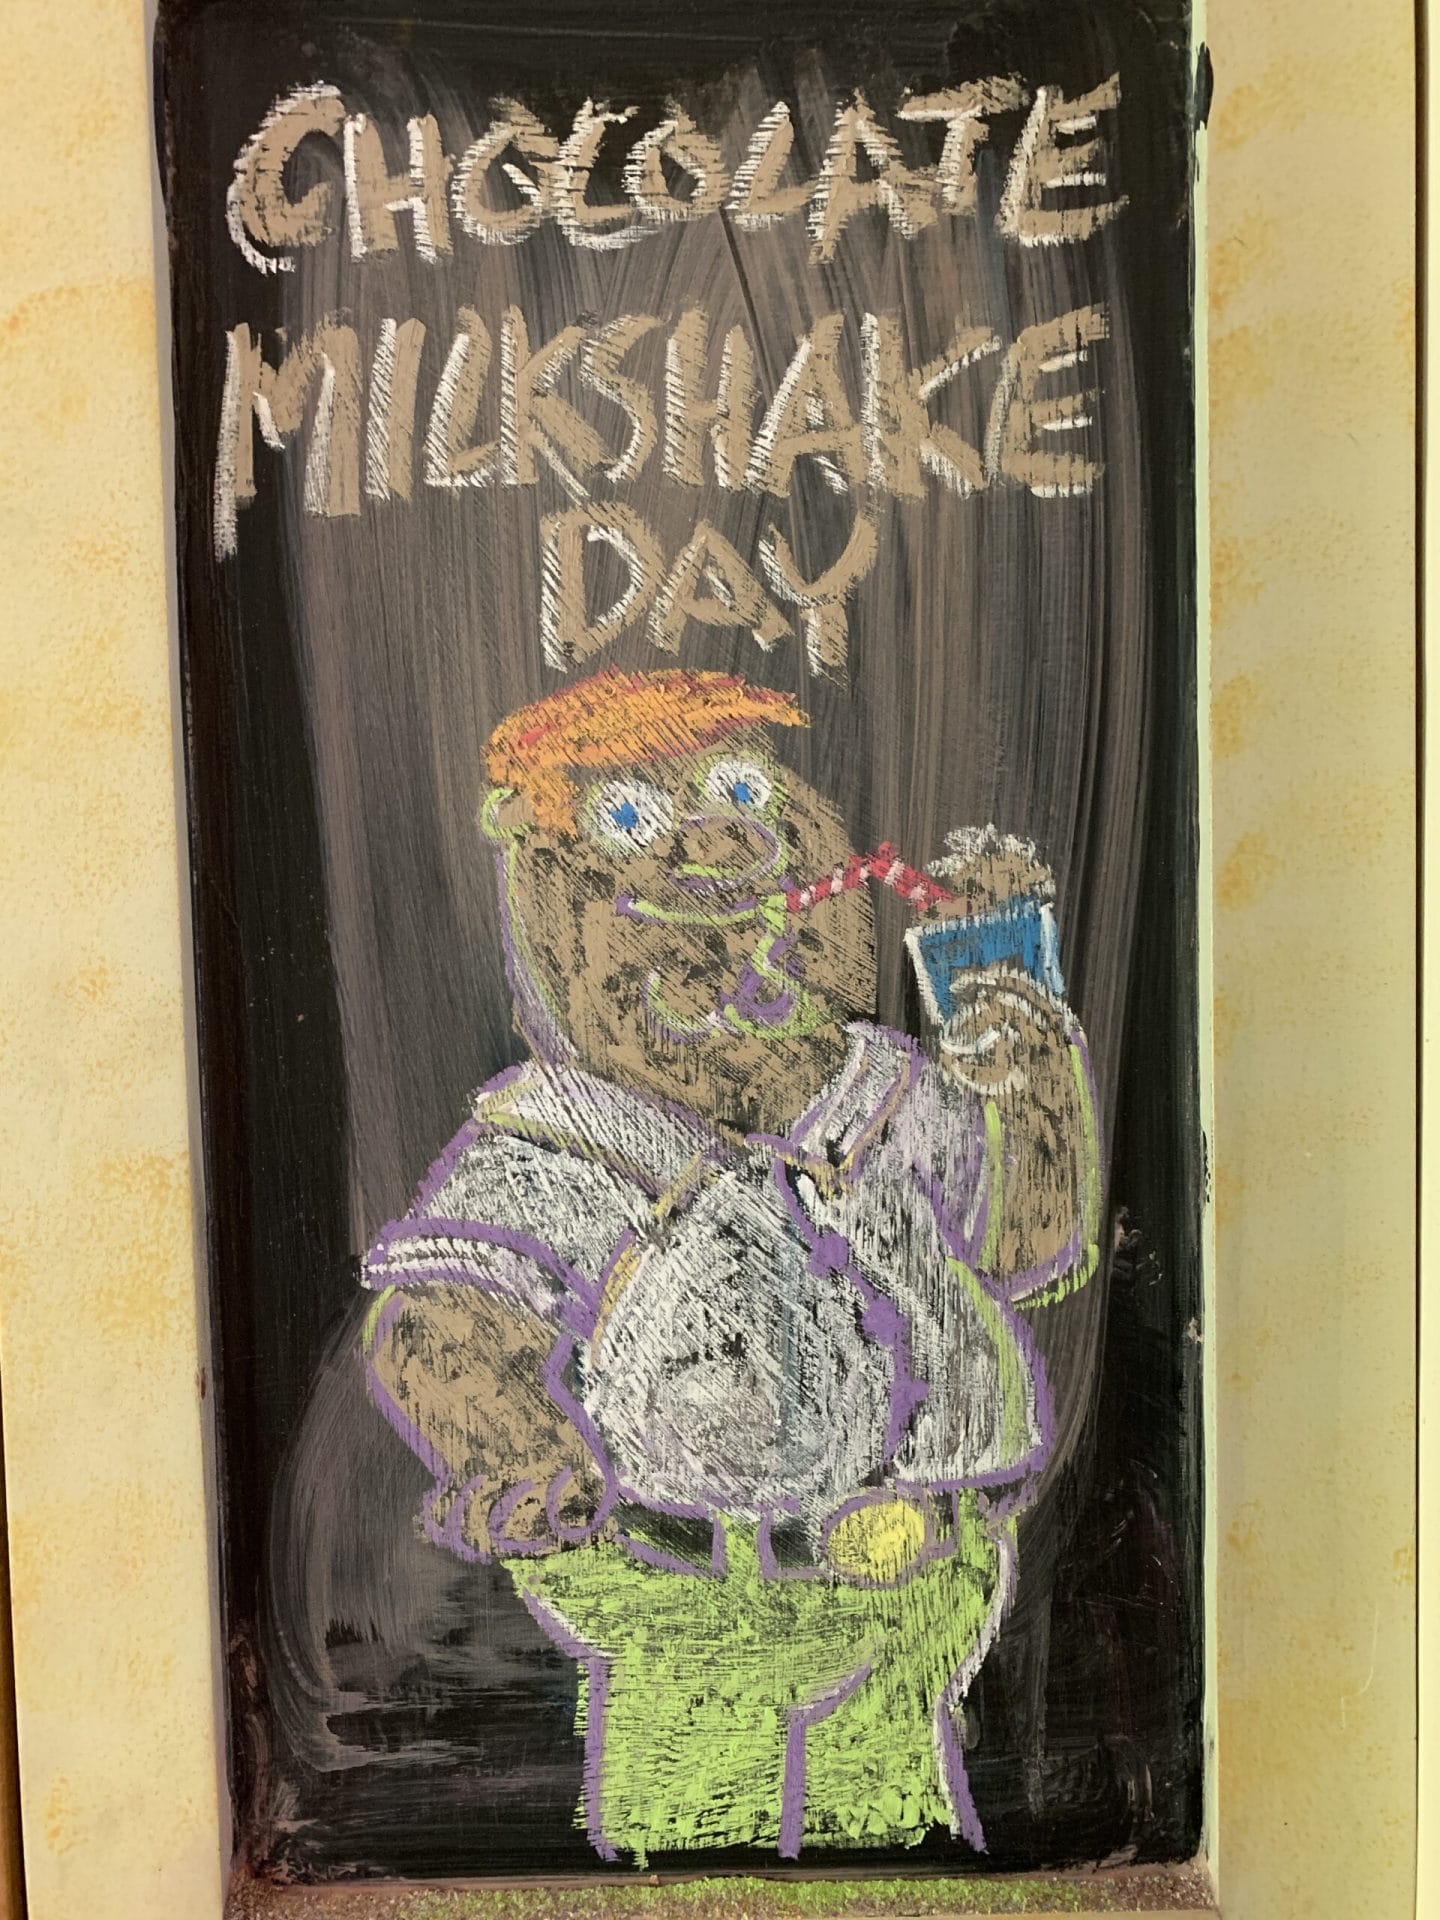 CHOCOLATE
MILKSHAKE
DAY